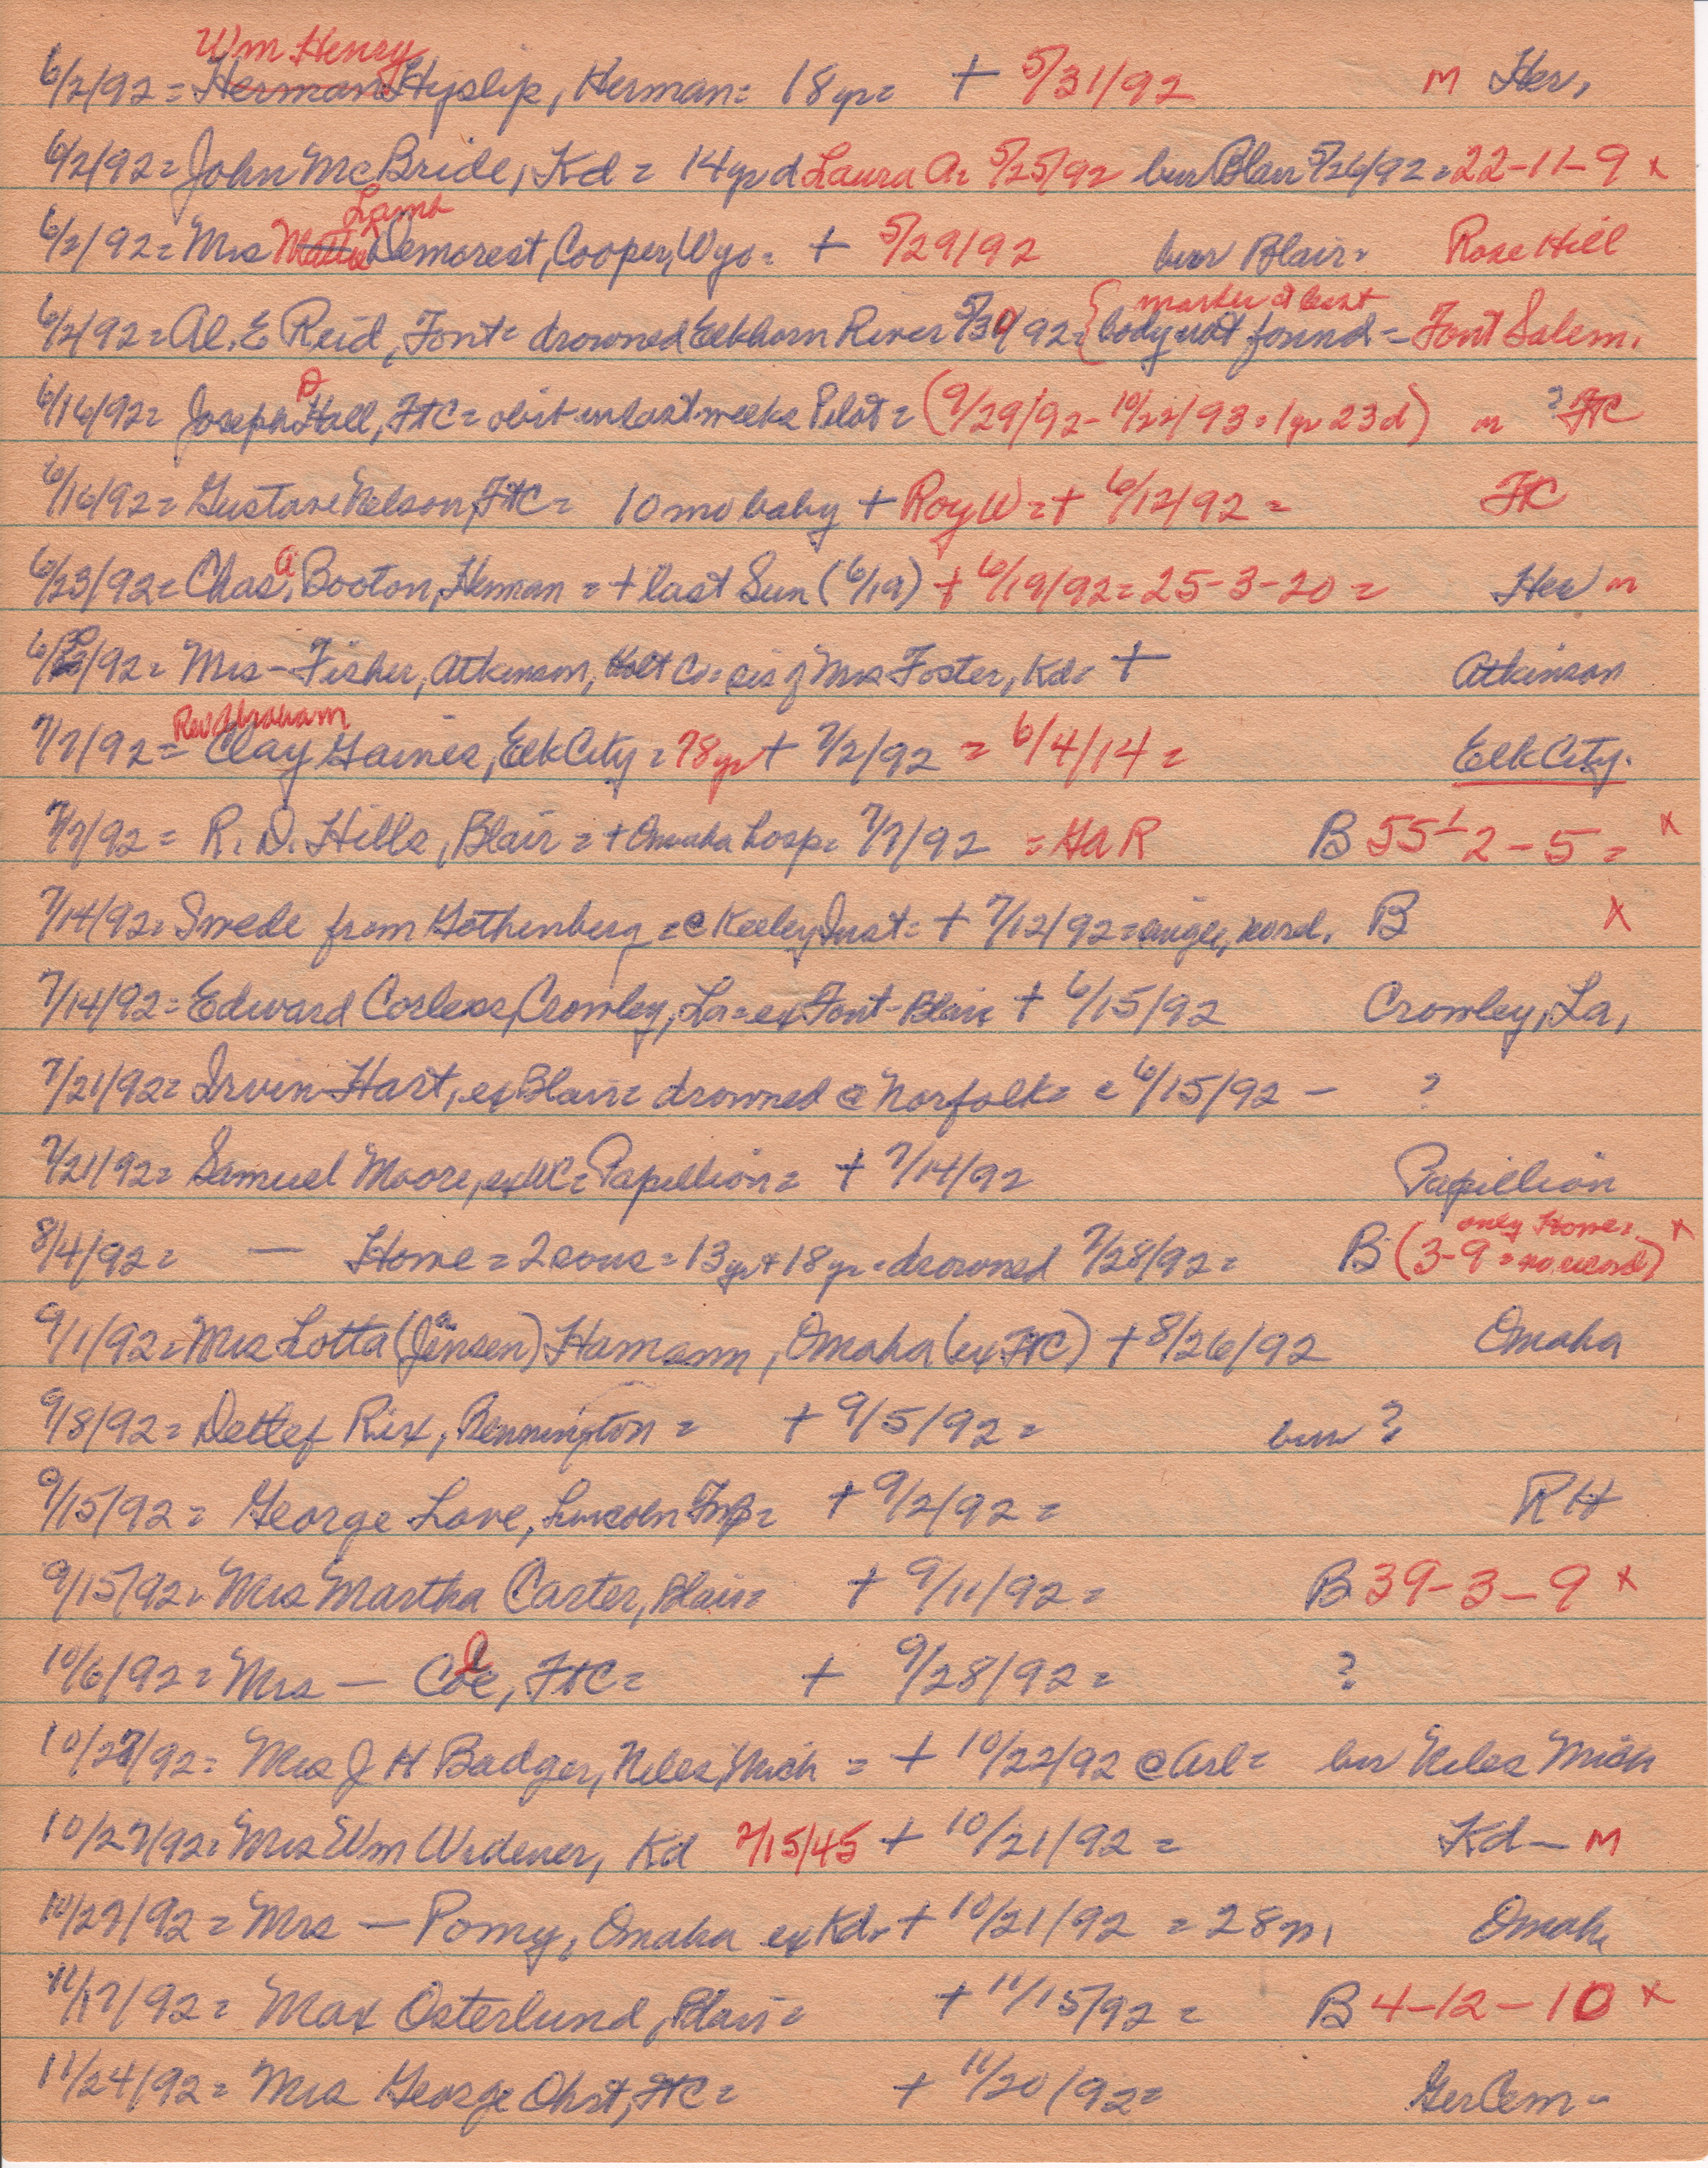 Wm Henry
6/2/92 = Herman Hyslip, Herman = 18 yr = + 5/31/92 M Her,
6/2/92 = John McBride, Kd = 14 yr d Laura A = 5/25/92 bur Blair 5/26/92 = 22-11-9 x
Lama
6/2/92 = Mrs Mattie Demorest, Cooper, Wyo = + 5/29/92 bur Blair = Rose Hill
marker at least
6/2/92 = Al. E Reid, Font = drowned Elkhorn River 5/30/92 = { body not found = Font Salem.
6/16/92 = Joseph P Hall, FtC = obit in last weeks Pilot = (9/29/92 - 10/22/93 = 1 yr 23 d) m ? FtC
6/16/92 = Gustave Nelson, FtC = 10 mo baby + Roy W = + 6/12/92 = FtC
6/23/92 = Chas. A Booton, Herman = + last Sun (6/19) + 6/19/92 = 25-3-20 = Her m
/92 = Mrs - Fisher, Atkinson, Holt Co = sis of Mrs Foster, Kd = + Atkinson
Rev Abraham
7/7/92 = Clay Gaines, Elk City = 78 yr + 7/2/92 = 6/4/14 = Elk City.
7/7/92 = R. D. Hills, Blair = + Omaha hosp = 7/7/92 = HaR B 55-2-5 = x
7/14/92 = Swede from Gothenberg = @ Keeley Inst = + 7/12/92 = B x
7/14/92 = Edward Corless, Crowley, La = ex Font-Blair + 6/15/92 Crowley, La,
7/21/92 = Irvin Hart, ex Blair = drowned @ Norfolk = c 6/15/92 - ?
7/21/92 = Samuel Moore, ex = Papillion = + 7/14/92 Papillion
only Home =
8/4/92 = — Home = 2 sons = 13 yr + 18 yr = drowned 7/28/92 = B (3-9 = no record) x
9/1/92 = Mrs Lotta (Jensen) Hamann, Omaha (ex FtC) + 8/26/92 Omaha
9/8/92 = Detlef Rix, Bennington = + 9/5/92 = bur ?
9/15/92 = George Love, Lincoln Twp = + 9/2/92 = RH
9/15/92 = Mrs Martha Carter, Blair = + 9/11/92 = B 39-3-9 x
10/6/92 = Mrs — Cole, FtC = + 9/28/92 = ?
10/27/92 = Mrs J H Badger, Niles, Mich = + 10/22/92 @ Arl = bur Niles Mich
10/27/92 = Mrs Wm Widener, Kd 7/15/45 + 10/21/92 = Kd - M
10/27/92 = Mrs — Pomy, Omaha ex Kd = + 10/21/92 = 28 Omaha
11/17/92 = Max Osterlund, Blair = + 11/15/92 = B 4-12-10 x
11/24/92 = Mrs George Ohrt, FtC = + 11/20/92 = Ger Cem -